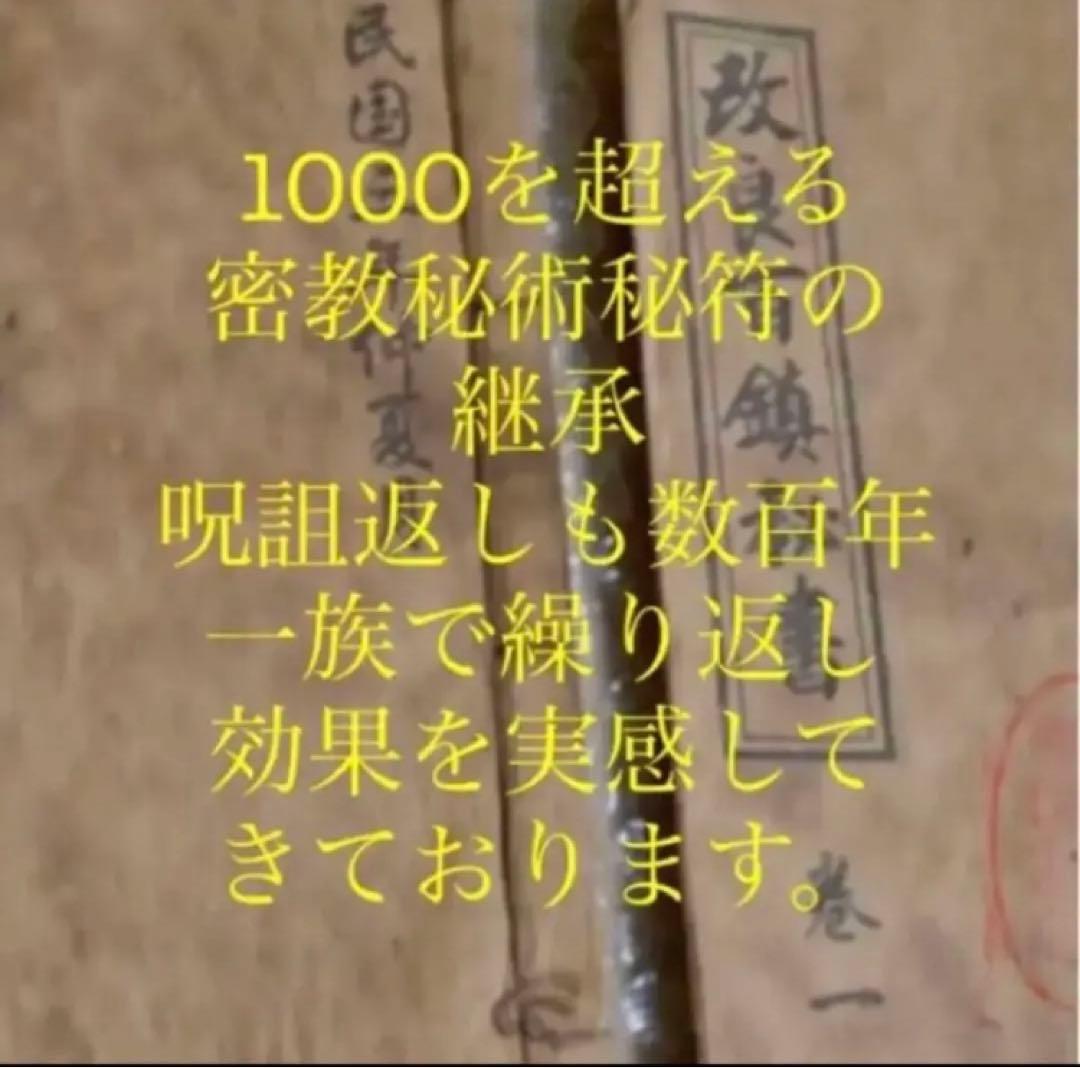 1000を超える
密教秘術秘符の
継承
呪詛返しも数百年
一族で繰り返し
効果を実感して
きております。
改良百鎮秘書
卷一
民国三年仲夏